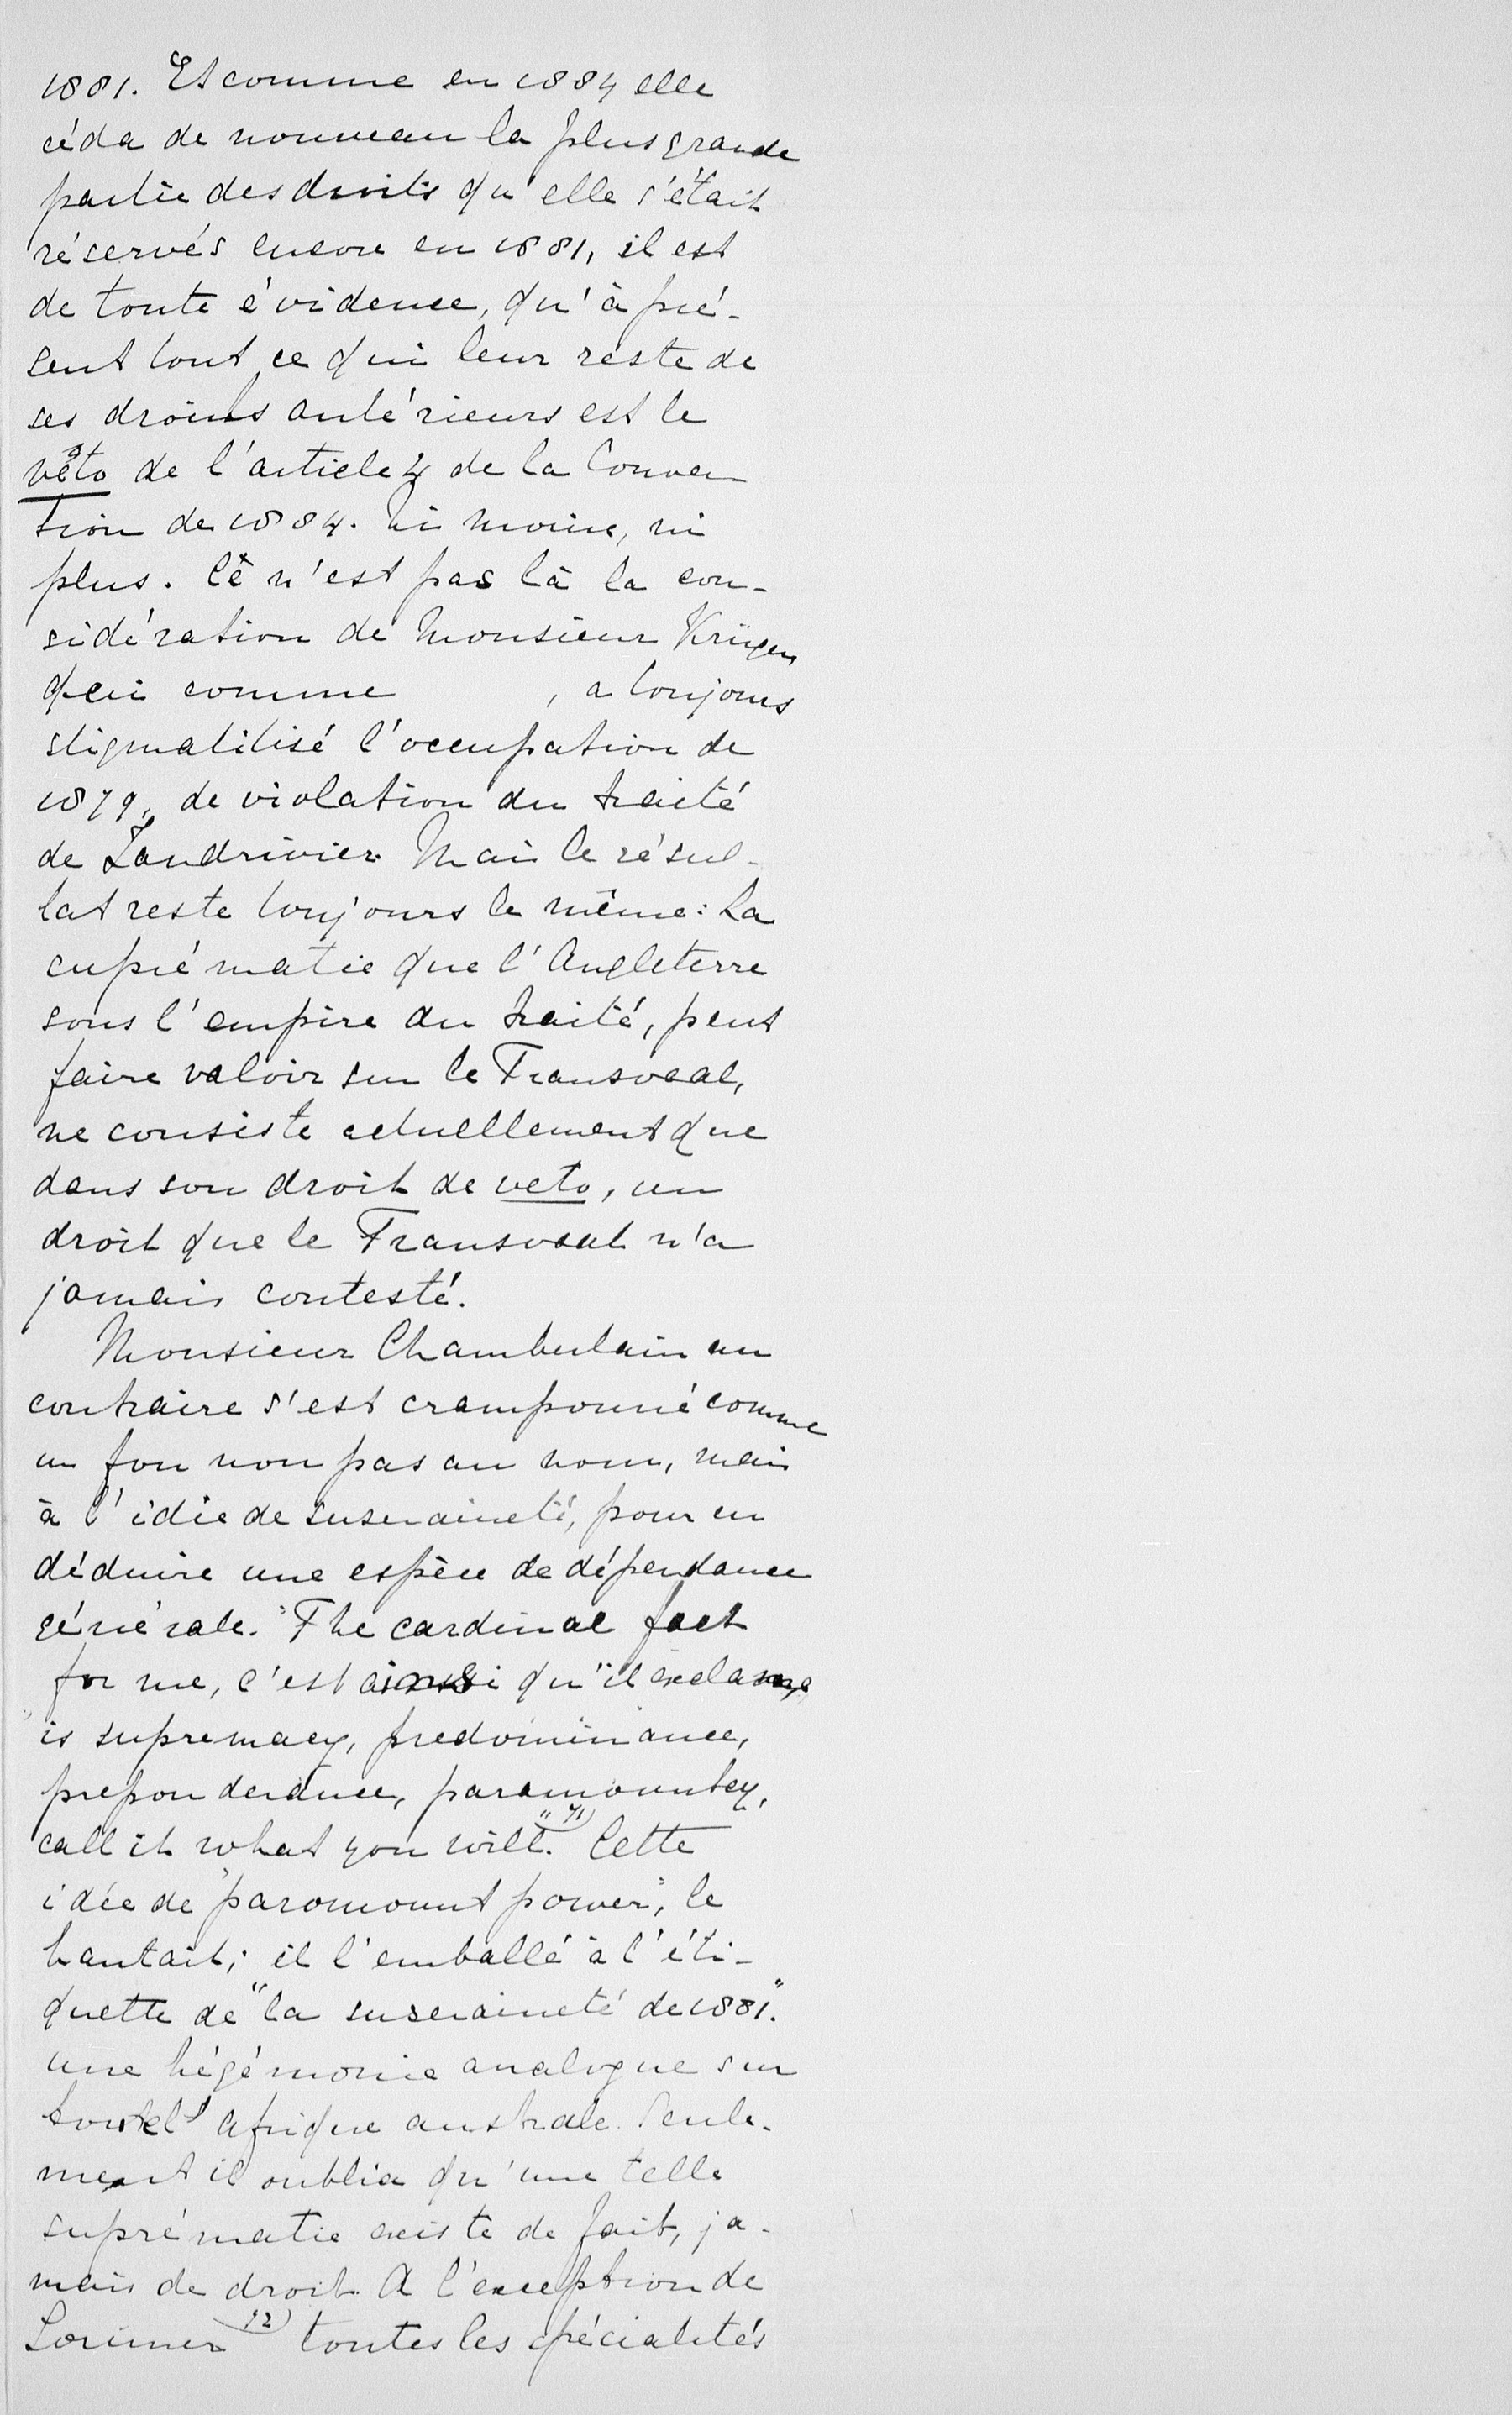 1881. Et comme en 1884 elle
céda de nouveau la plus grande
partie des droits qu'elle s'était
réservés encore en 1881, il est
de toute évidence, qu'à pré-
sent tout ce qui leur reste de
ses droits antérieurs est le
veto de l'article 4 de la Conven
tion de 1884. Ni moins, ni
plus. Ce n'est pas là la con-
sidération de Monsieur Krüger
qui comme , a toujours
stigmatilisé l'occupation de
1879, de violation du traité
de Zandrivier. Mais le résul-
tat reste toujours le même: La
suprématie que l'Angleterre
sous l'empire du traité, peut
faire valoir sur le Transvaal,
ne consiste actuellement que
dans son droit de veto, un
droit que le Transvaal n'a
jamais contesté.
Monsieur Chamberlain au
contraire s'est cramponné comme
un fou non pas au nom, mais
à l'idée de suseraineté, pour en
déduire une espèce de dépendance
générale. "The cardinal fact
for me, c'est ainsi qu'il exclame
"is supremacy, predominance,
preponderance, paramountcy,
call it what you will." 71) Cette
idée de "paramount power", le
hantait; il l'emballé à l'éti-
quette de "la suseraineté de 1881".
une hégémonie analogue sur
toute l'Afrique australe. Seule-
ment il oublia qu'une telle
suprématie existe de fait, ja-
mais de droit. A l'exception de
Lorimer 72) toutes les spécialités